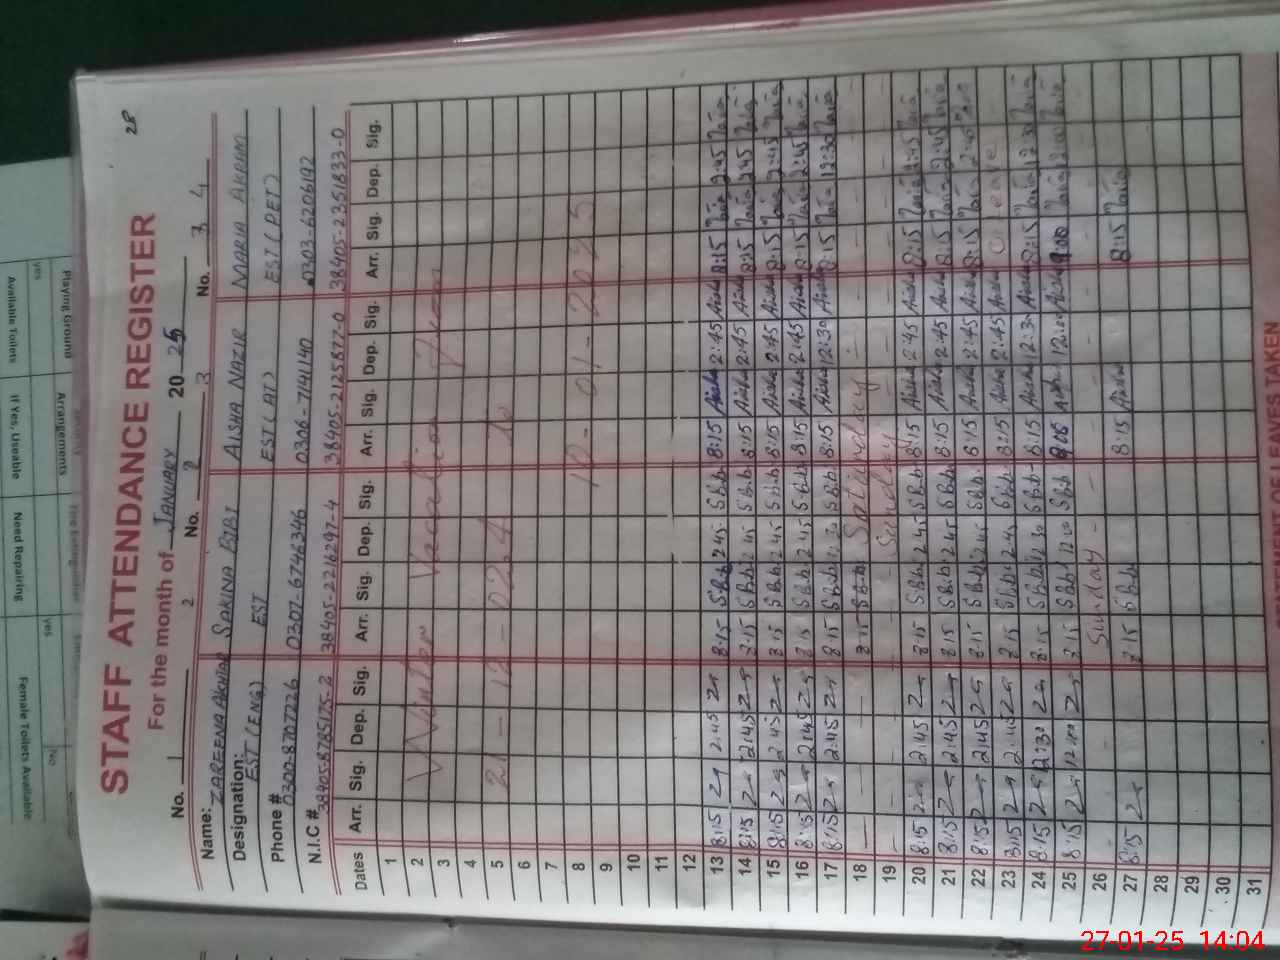 28
STAFF ATTENDANCE REGISTER
For the month of JANUARY 2025
No. 1 No. 2 No. 3 4
2 3 3
Name: ZAREENA AKHTAR SAKINA BIBI AISHA NAZIR MARIA AKRAM
Designation: EST (ENG) EST EST (AT) EST (PET)
Phone # 0300-8707226 0307-6746346 0306-7141140 0303-6206192
N.I.C # 38405-8785175-2 38405-2216297-4 38405-2125877-0 38405-2351833-0
Dates Arr. Sig. Dep. Sig. Arr. Sig. Dep. Sig. Arr. Sig. Dep. Sig. Arr. Sig. Dep. Sig.
1
2 Winter Vacation
3
4
5 21-12-024 To
6
7
8 10-01-2025
9
10
11
12
13 8:15 2:45 8:15 S B.b 2:45 S B.b 8:15 Aisha 2:45 Aisha 8:15 Maria 2:45 Maria
14 8:15 2:45 8:15 S B.b 2:45 S B.b 8:15 Aisha 2:45 Aisha 8:15 Maria 2:45 Maria
15 8:15 2:45 8:15 S B.b 2:45 S B.b 8:15 Aisha 2:45 Aisha 8:15 Maria 2:45 Maria
16 8:15 2:45 8:15 S B.b 2:45 S B.b 8:15 Aisha 2:45 Aisha 8:15 Maria 2:45 Maria
17 8:15 2:45 8:15 S B.b 12:30 S B.b 8:15 Aisha 12:30 Aisha 8:15 Maria 12:30 Maria
18 8:15 S B.b Saturday
19 Sunday
20 8:15 2:45 8:15 S B.b 2:45 S B.b 8:15 Aisha 2:45 Aisha 8:15 Maria 2:45 Maria
21 8:15 2:45 8:15 S B.b 2:45 S B.b 8:15 Aisha 2:45 Aisha 8:15 Maria 2:45 Maria
22 8:15 2:45 8:15 S B.b 2:45 S B.b 8:15 Aisha 2:45 Aisha 8:15 Maria 2:45 Maria
23 8:15 2:45 8:15 S B.b 2:45 S B.b 8:15 Aisha 2:45 Aisha C leave
24 8:15 12:30 8:15 S B.b 12:30 S B.b 8:15 Aisha 12:30 Aisha 8:15 Maria 12:30 Maria
25 8:15 12:00 8:15 S B.b 12:00 S B.b 9:00 Aisha 12:00 Aisha 9:00 Maria 12:00 Maria
26 Sunday
27 8:15 8:15 S B.b 8:15 Aisha 8:15 Maria
28
29
30
31
OF LEAVES TAKEN
Playing Ground Arrangements
Available Toilets If Yes, Useable Need Repairing Female Toilets Available
yes yes No
27-01-25 14:04